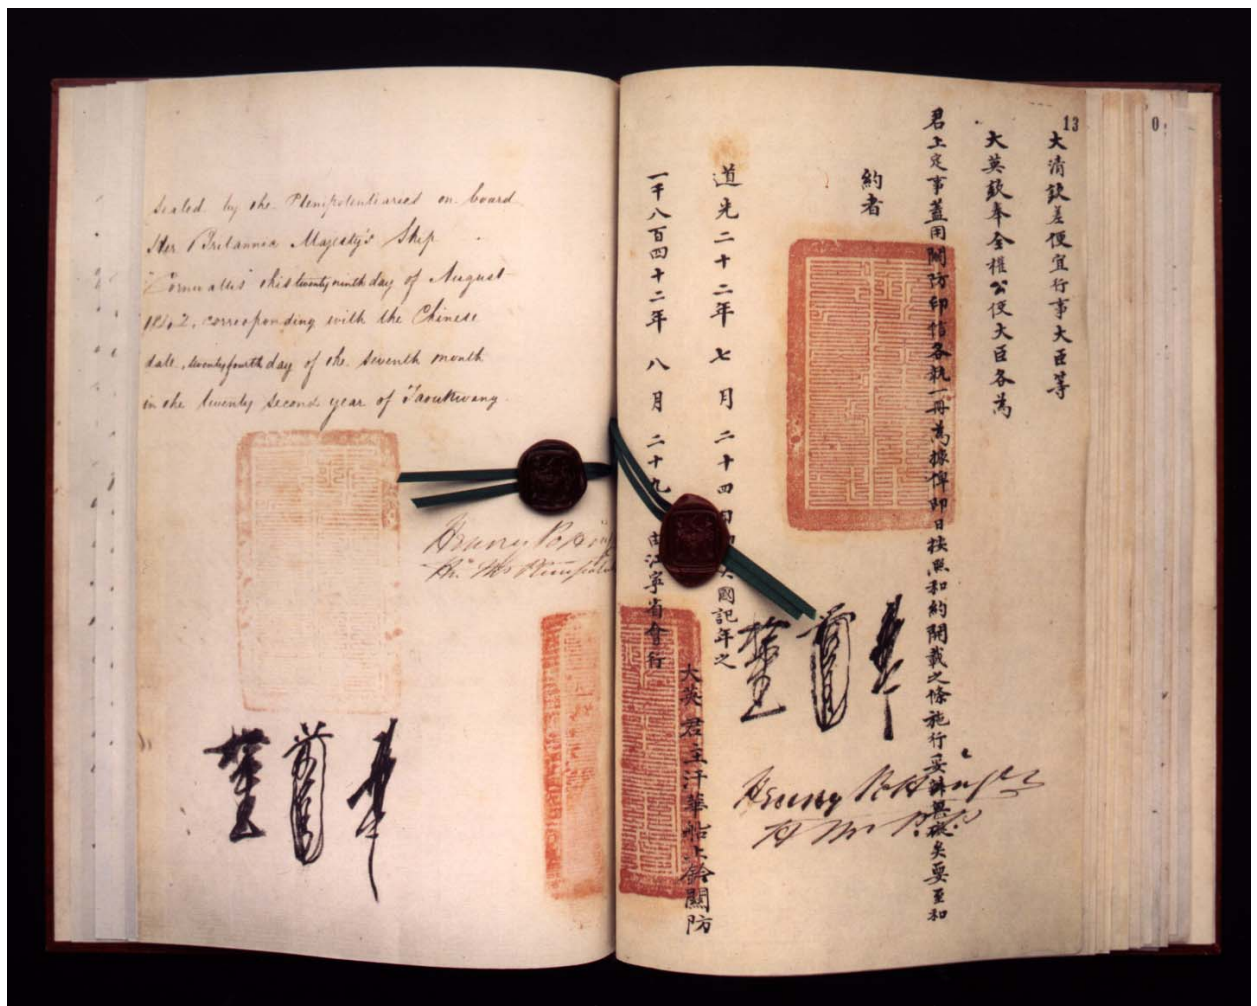 Sealed by the Plenipotentiaries on board
Her Britannic Majesty's Ship
"Cornwallis" this twenty ninth day of August
1842, corresponding with the Chinese
date, twenty fourth day of the seventh month
in the twenty second year of Taoukwang.
Henry
13
0
大清欽差便宜行事大臣等
大英欽奉全權公使大臣各為
君上定事蓋用關防印信各執一冊為據俾即日按照和約開載之條施行妥辦無礙矣要至和
約者
道光二十二年七月二十四日 國記年之
一千八百四十二年八月二十九 由江寧省會行
大英君主汗華船上鈐關防
Henry Pottinger